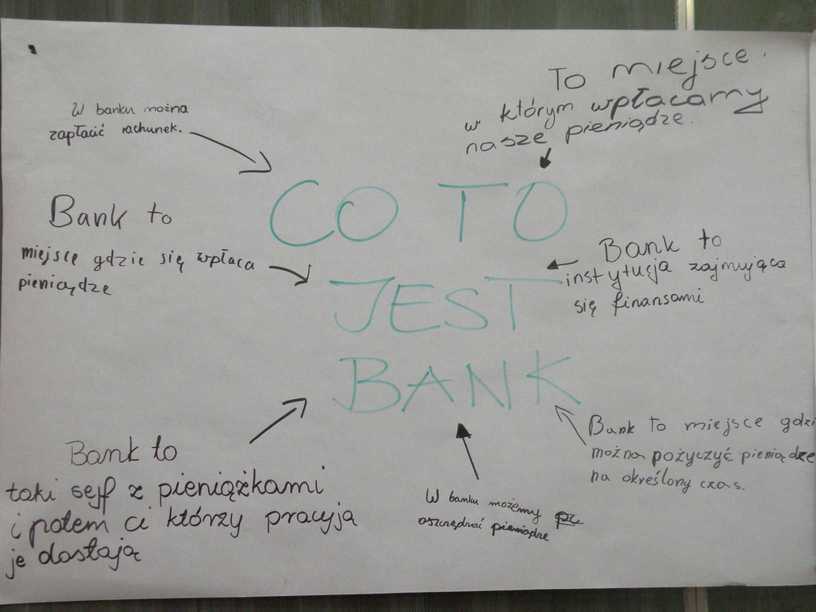 W banku można
zapłacić rachunek.
To miejsce.
w którym wpłacamy
nasze pieniądze.
CO TO
JEST
BANK
Bank to
miejsce gdzie się wpłaca
pieniądze
Bank to
instytucja zajmująca
się finansami
Bank to
taki sejf z pieniążkami
i potem ci którzy pracyja
je dostają
W banku możemy
oszczędzać pieniądze
Bank to miejsce gdzi
można pożyczyć pieniądze
na określony czas.